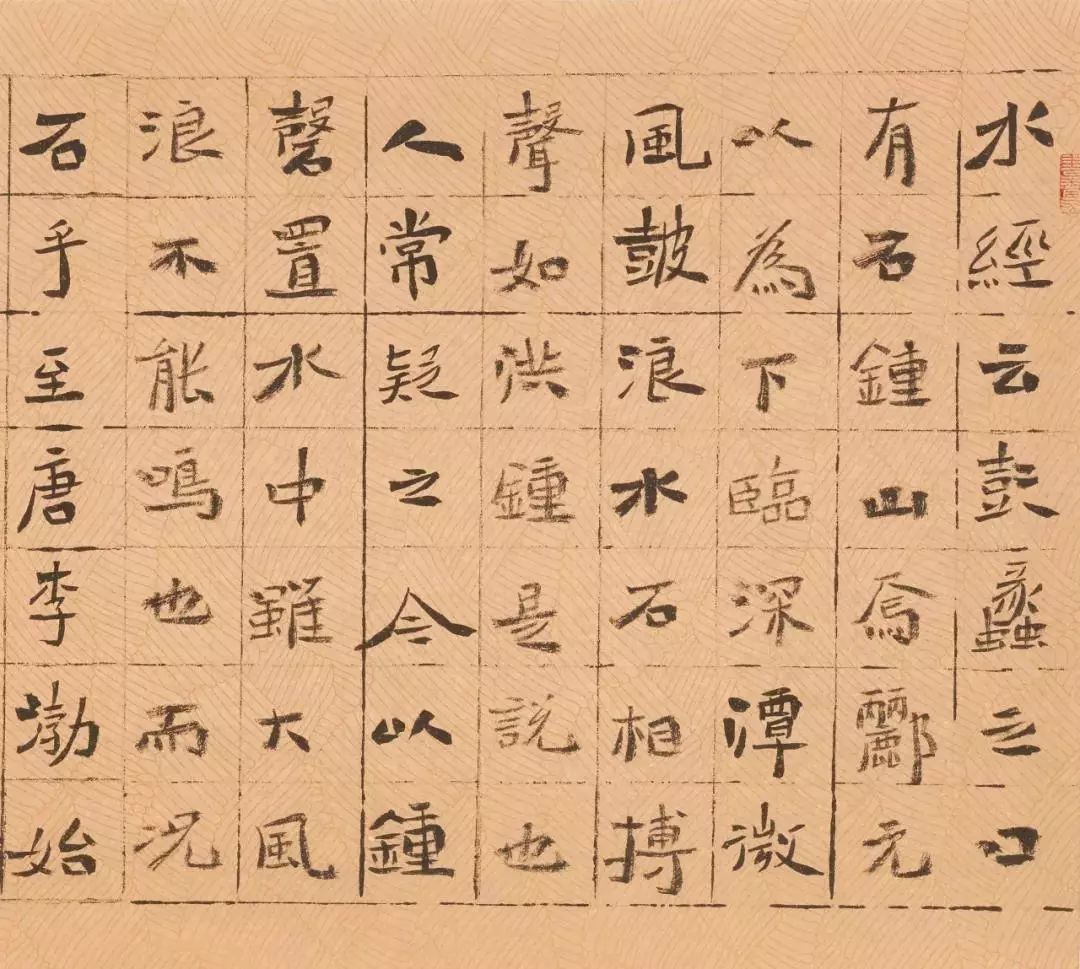 水經云彭蠡之口
有石鍾山焉酈元
以為下臨深潭微
風鼓浪水石相搏
聲如洪鍾是說也
人常疑之今以鍾
磬置水中雖大風
浪不能鳴也而況
石乎至唐李渤始